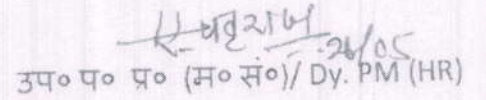 26/05
उप० प० प्र० (म० सं०)/ Dy. PM (HR)